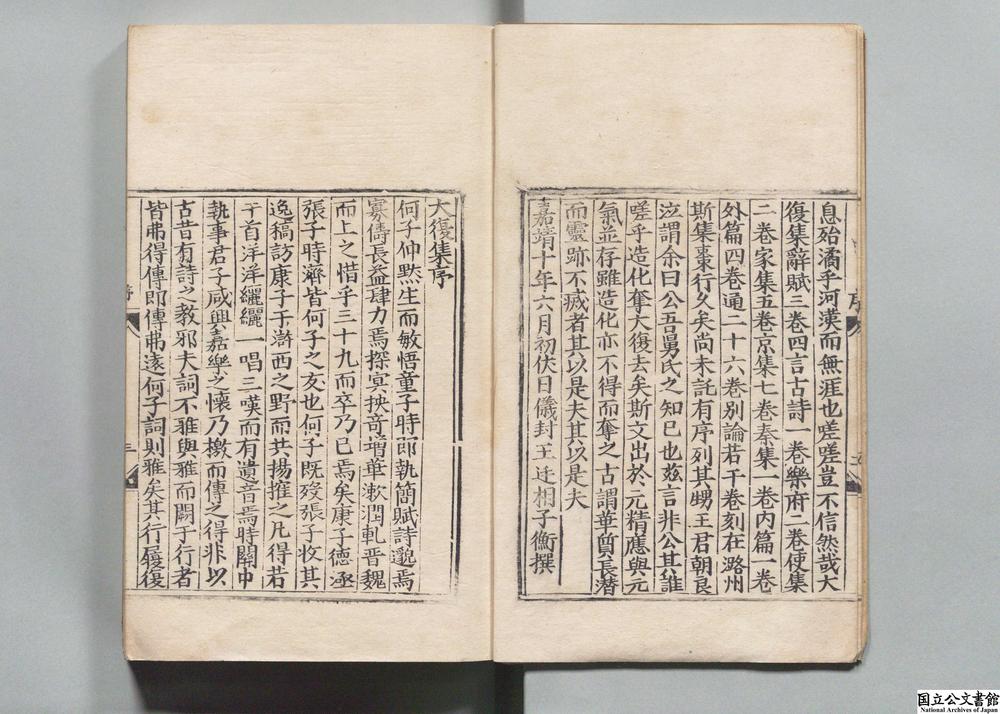 息殆潏乎河漢而無涯也嗟嗟豈不信然哉大
復集辭賦三卷四言古詩一卷樂府二卷使集
二卷家集五卷京集七卷秦集一卷內篇一卷
外篇四卷通二十六卷別論若干卷刻在潞州
斯集棗行久矣尚未託有序列其甥王君朝良
泣謂余曰公吾舅氏之知已也茲言非公其誰
嗟乎造化奪大復去矣斯文出於元精應與元
氣並存雖造化亦不得而奪之古謂華質長潛
而靈跡不滅者其以是夫其以是夫
嘉靖十年六月初伏日儀封王廷相子衡撰
序
大復集序
何子仲默生而敏悟童子時即執簡賦詩邈焉
寡儔長益肆力焉探冥抉奇增華漱潤軋晉魏
而上之惜乎三十九而卒乃已焉矣康子德涵
張子時濟皆何子之友也何子既歿張子收其
逸稿訪康子于滸西之野而共揚搉之凡得若
干首洋洋纚纚一唱三嘆而有遺音焉時關中
執事君子咸興嘉樂之懷乃檄而傳之得非以
古昔有詩之教邪夫詞不雅與雅而闕于行者
皆弗得傳即傳弗遠何子詞則雅矣其行履復
序
三
国立公文書館
National Archives of Japan